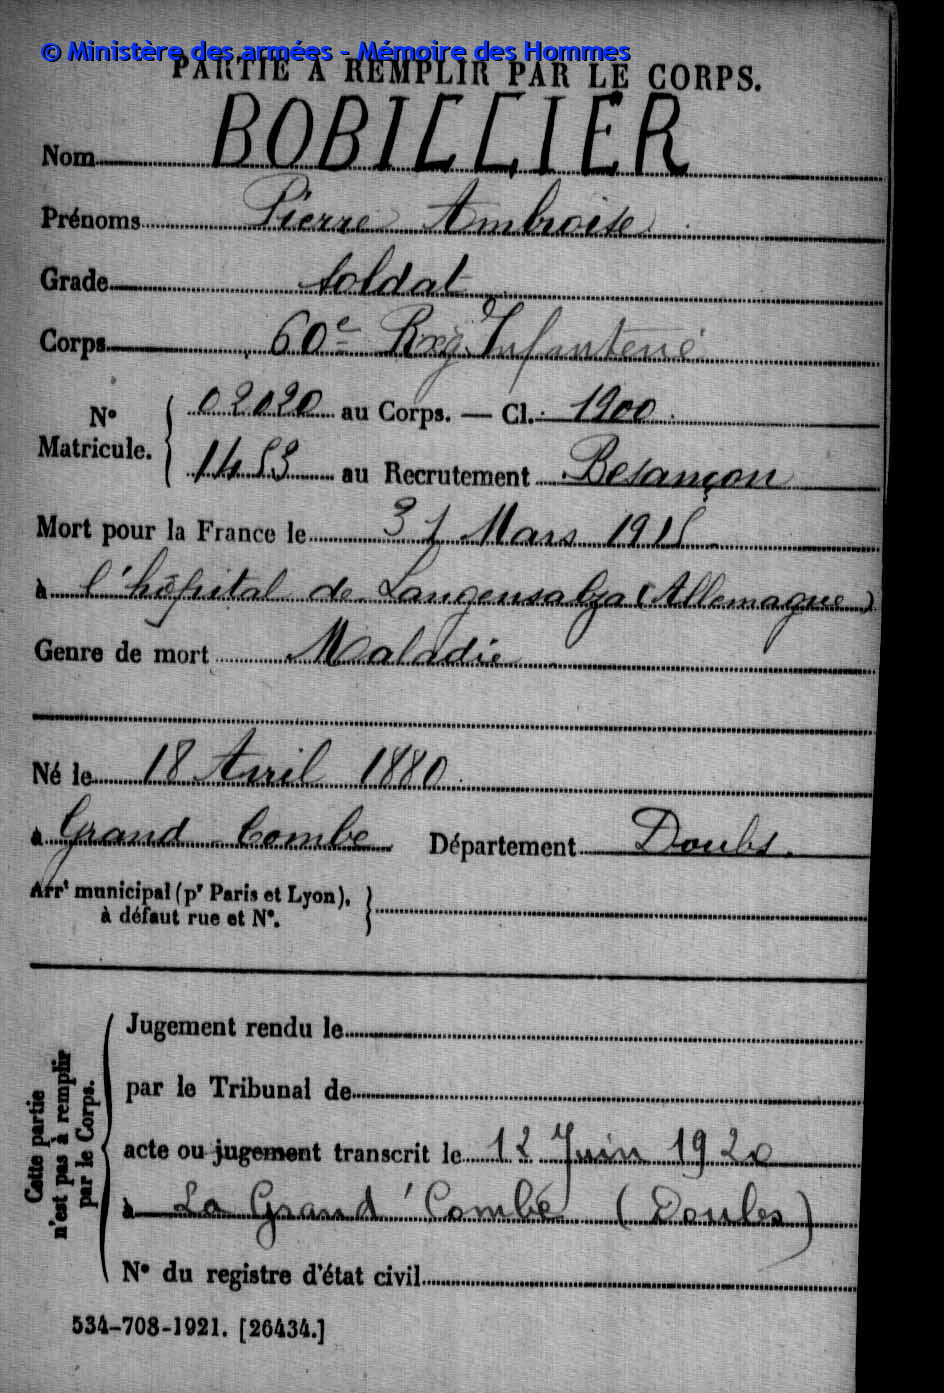 © Ministère des armées - Mémoire des Hommes
PARTIE A REMPLIR PAR LE CORPS.
Nom BOBILLIER
Prénoms Pierre Ambroise
Grade Soldat
Corps 60e Rég. Infanterie
N° Matricule. { 02020 au Corps. — Cl. 1900
1453 au Recrutement Besançon
Mort pour la France le 31 Mars 1915
à l'hôpital de Langensalza (Allemagne)
Genre de mort Maladie
Né le 18 Avril 1880
à Grand Combe Département Doubs.
Arrt municipal (pr Paris et Lyon), }
à défaut rue et N°.
Cette partie
n'est pas à remplir
par le Corps.
Jugement rendu le
par le Tribunal de
acte ou jugement transcrit le 12 Juin 1920
à La Grand'Combe (Doubs)
N° du registre d'état civil
534-708-1921. [26434.]